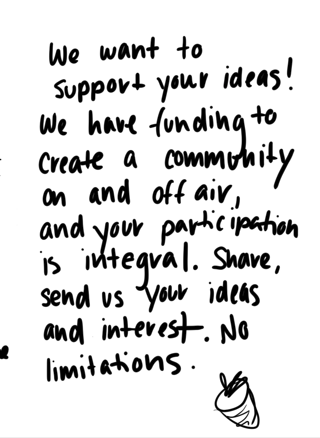 We want to
support your ideas!
We have funding to
create a community
on and off air,
and your participation
is integral. Share,
send us your ideas
and interest. No
limitations.